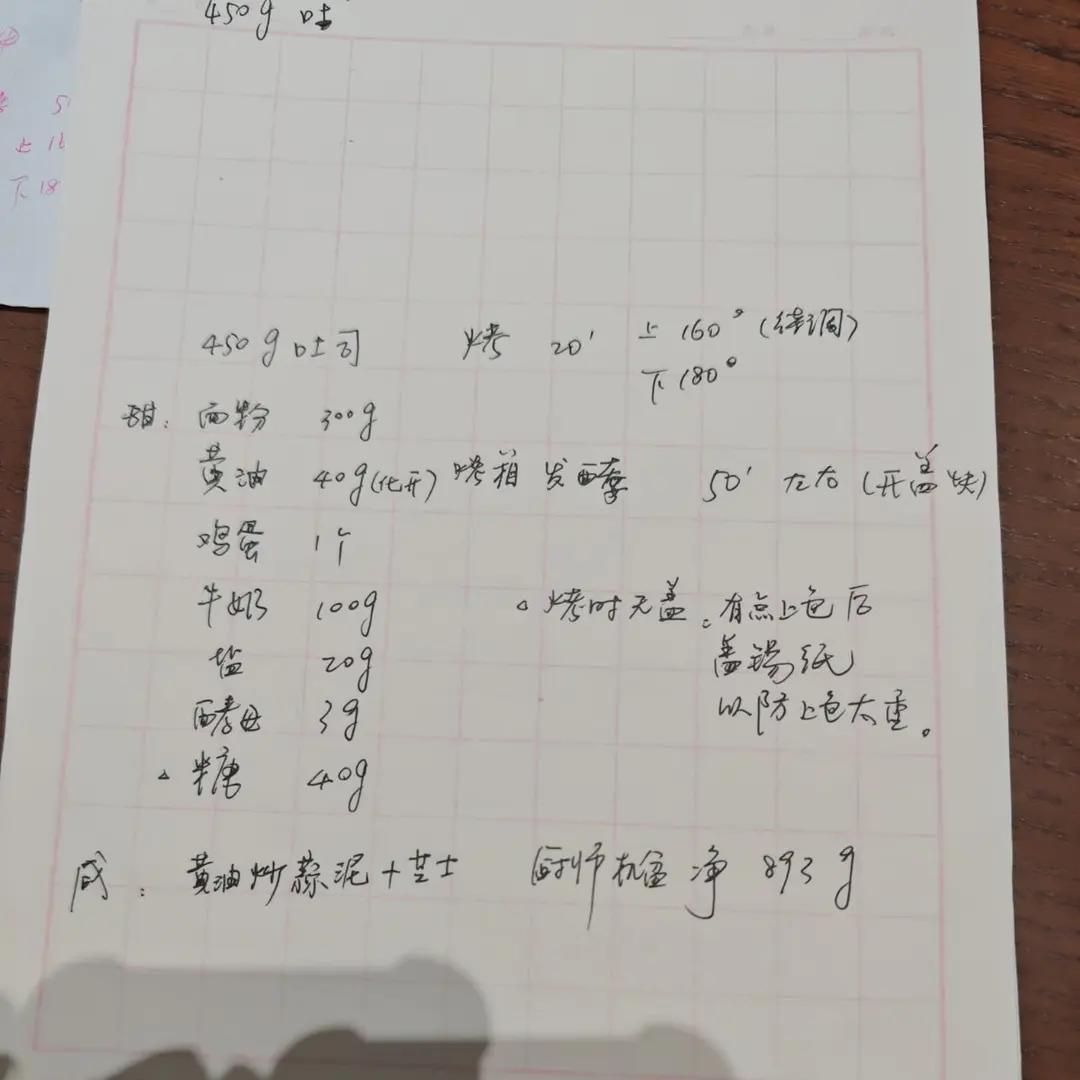 450g 吐
上 16
下 18
450g 吐司 烤 20' 上 160°
下 180°
甜: 面粉 300g
黄油 40g(化开) 烤箱 发酵 50' 左右 (开盖 快)
鸡蛋 1个
牛奶 100g
△ 烤时无盖。有点上色后
盐 20g
盖锡纸
酵母 3g
以防上色太重。
△ 糖 40g
咸: 黄油炒蒜泥+芝士 厨师机盆 净 893g